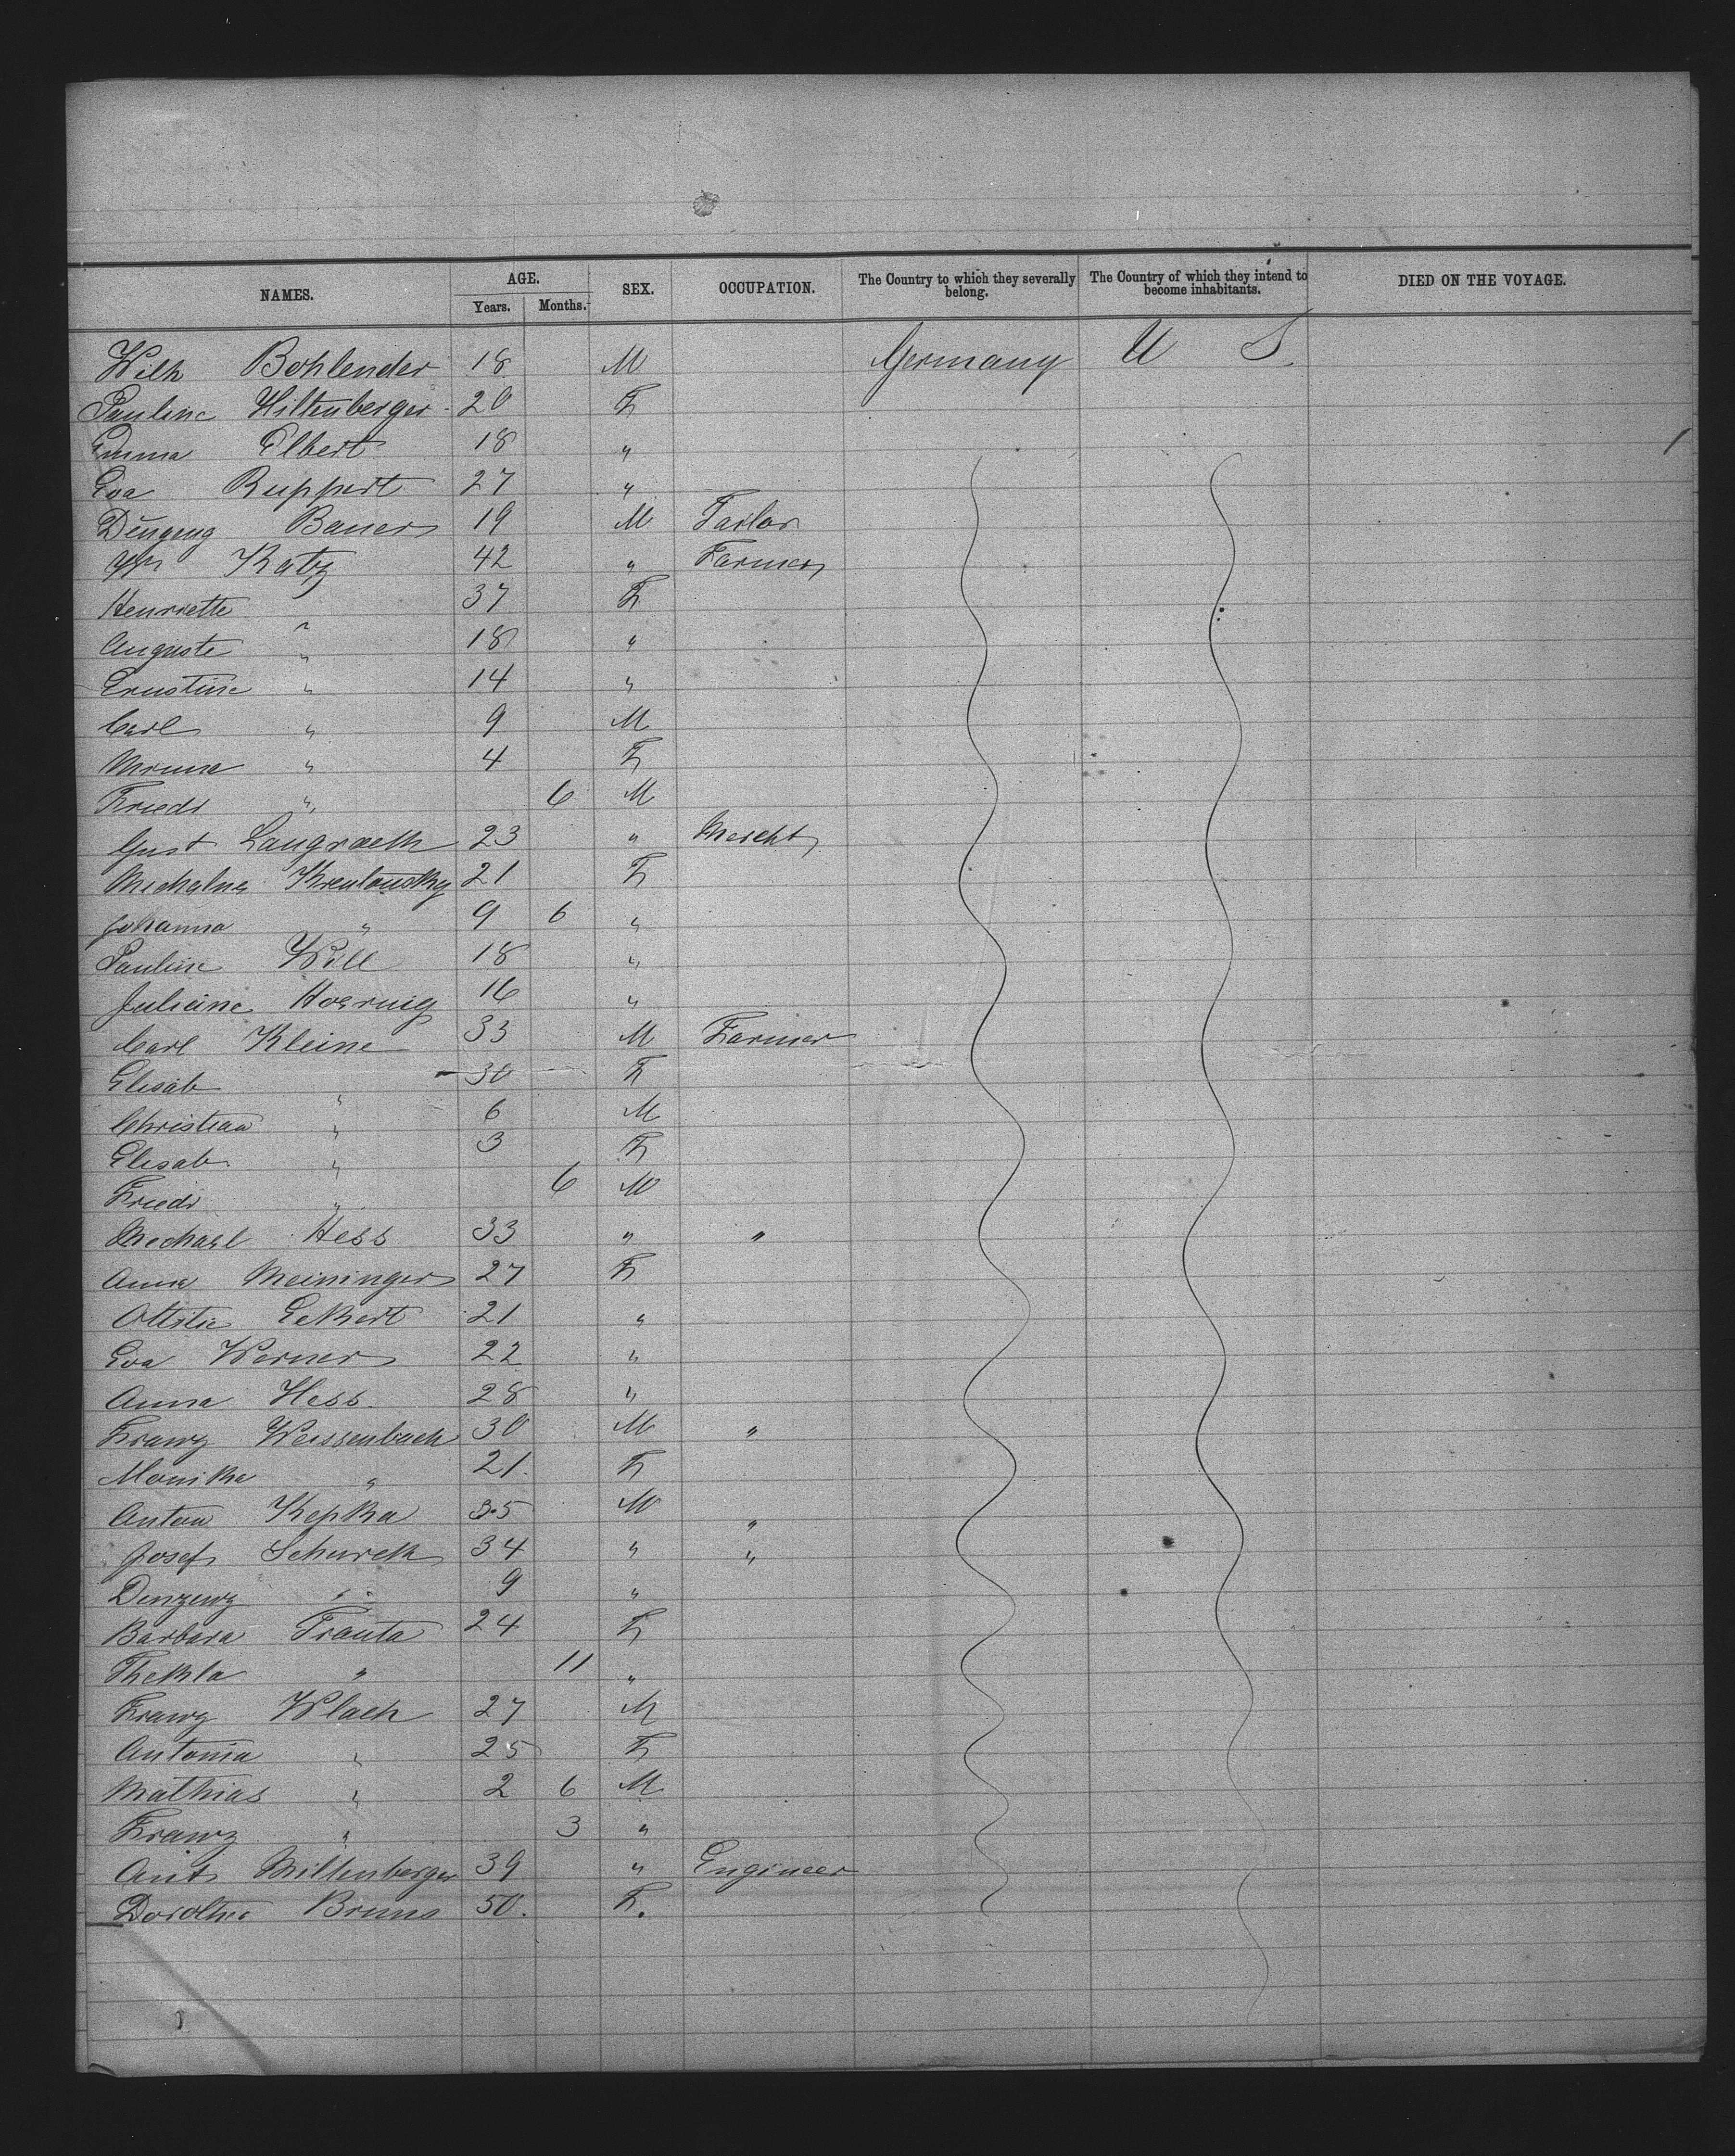 NAMES. AGE. SEX. OCCUPATION. The Country to which they severally belong. The Country of which they intend to become inhabitants. DIED ON THE VOYAGE.
Years. Months.
Wilh Bohlender 18 M Germany U S
Pauline Hiltenberger 20 F
Emma Elbert 18 "
Eva Ruppert 27 "
Bauer 19 M Tailor
Wm Katz 42 " Farmer
Henriette " 37 F
Auguste " 18 "
Ernstine " 14 "
Carl " 9 M
Minna " 4 F
Friedr " 6 M
Gust Langraeth 23 " Mercht
21 F
Johanna " 9 6 "
Pauline Will 18 "
Juliane Hoernig 16 "
Carl Kleine 33 M Farmer
Elisab " 30 F
Christian " 6 M
Elisab " 3 F
Friedr " 6 M
Michael Hess 33 " "
Anna Meininger 27 F
Ottilie Eckert 21 "
Eva Werner 22 "
Anna Hess 28 "
Franz Weissenbach 30 M "
Monika " 21 F
Anton Kepka 35 M "
Josef Schurek 34 " "
Denzenz " 9 "
Barbara Franta 24 F
Thekla " 11 "
Franz Wlach 27 M
Antonia " 25 F
Mathias " 2 6 M
Franz " 3 "
Ant Miltenberger 39 " Engineer
Dorothea Bruns 50. F.